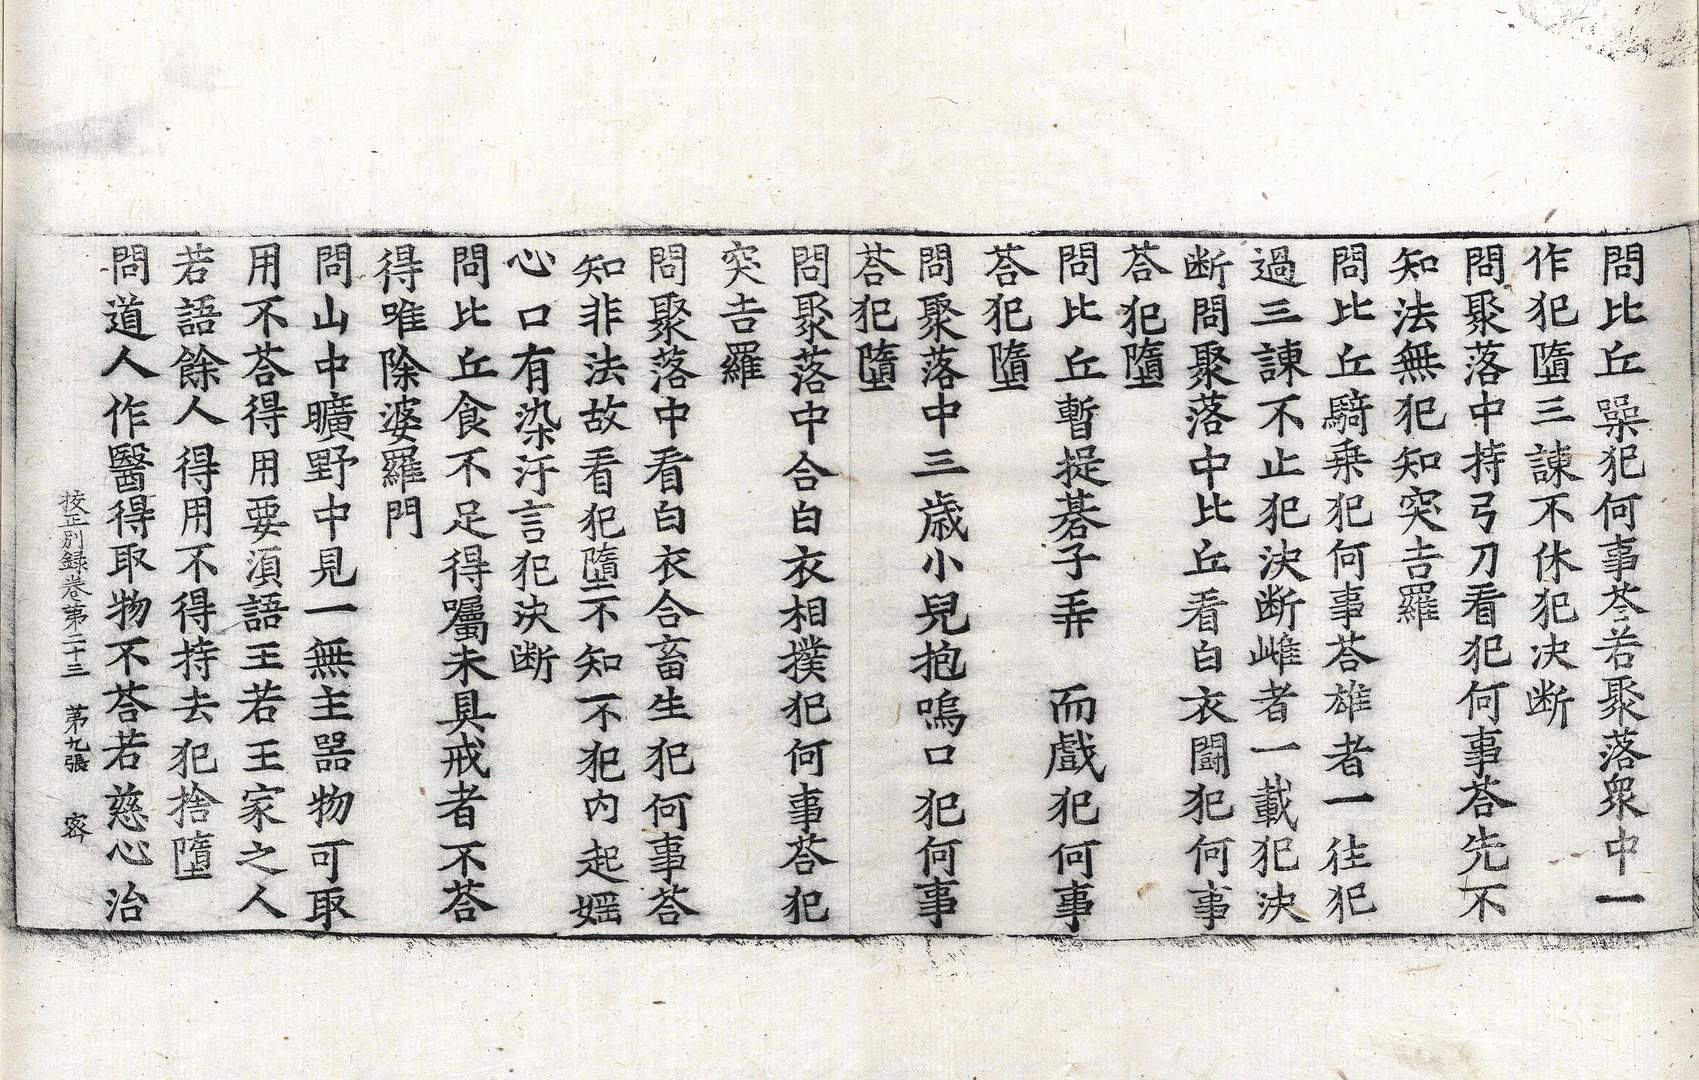 問比丘喿犯何事荅若聚落衆中一
作犯墮三諫不休犯决断
問聚落中持弓刀看犯何事荅先不
知法無犯知突吉羅
問比丘騎乗犯何事荅雄者一往犯
過三諫不止犯決断雌者一載犯決
断問聚落中比丘看白衣闘犯何事
荅犯墮
問比丘暫捉碁子弄 而戯犯何事
荅犯墮
問聚落中三歳小兒抱嗚口犯何事
荅犯墮
問聚落中合白衣相撲犯何事荅犯
突吉羅
問聚落中看白衣合畜生犯何事荅
知非法故看犯墮不知不犯内起婬
心口有染汙言犯決断
問比丘食不足得囑未具戒者不荅
得唯除婆羅門
問山中曠野中見一無主器物可取
用不荅得用要湏語王若王家之人
若語餘人得用不得持去犯捨墮
問道人作醫得取物不荅若慈心治
挍正別録巻第二十三 第九張 宻